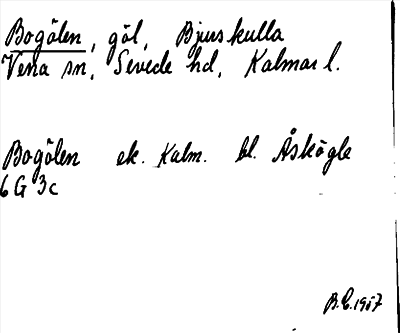 Bogölen, göl, Bjurskulla
Vena sn, Sevede hd, Kalmar l.
Bogölen ek. Kalm. bl. Åskögle
6 G 3c
B.C. 1957